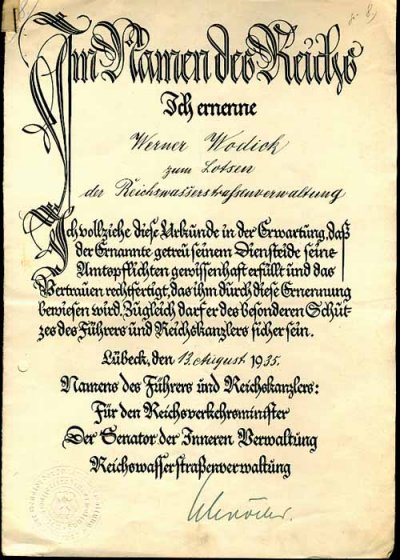 Im Namen des Reichs
Ich ernenne
Werner Wodick
zum Lotsen
der Reichswasserstraßenverwaltung
Ich vollziehe diese Urkunde in der Erwartung, daß
der Ernannte getreu seinem Diensteide seine
Amtspflichten gewissenhaft erfüllt und das
Vertrauen rechtfertigt, das ihm durch diese Ernennung
bewiesen wird. Zugleich darf er des besonderen Schut-
zes des Führers und Reichskanzlers sicher sein.
Lübeck, den 13. August 1935.
Namens des Führers und Reichskanzlers:
Für den Reichsverkehrsminister
Der Senator der Inneren Verwaltung
Reichswasserstraßenverwaltung